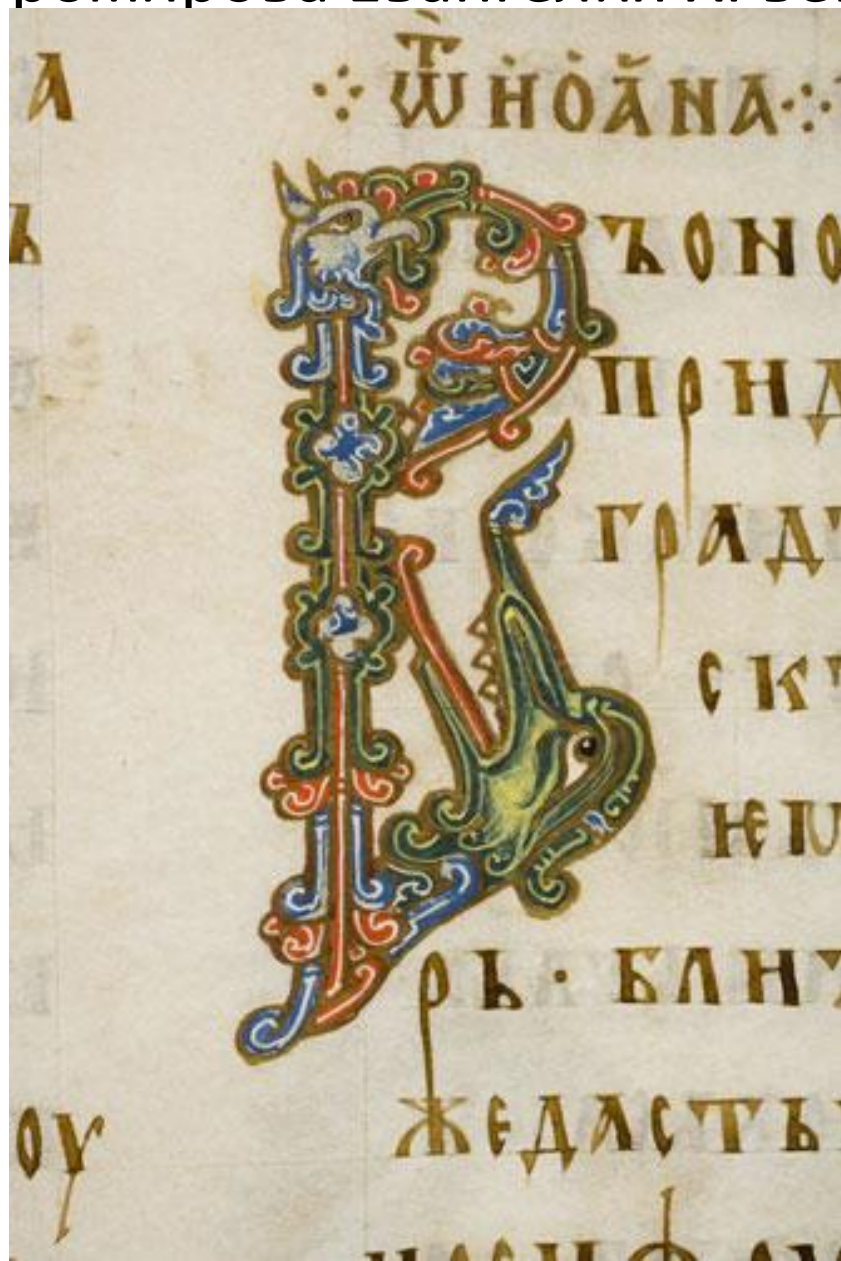 А
Ъ
ОУ
⁘ Ѿ ИОАНА ⁘
ВЪОНО
ПРИД
ГРАД
СК
ѤМ
РЬ · БЛИ
ЖЕДАСТЬ